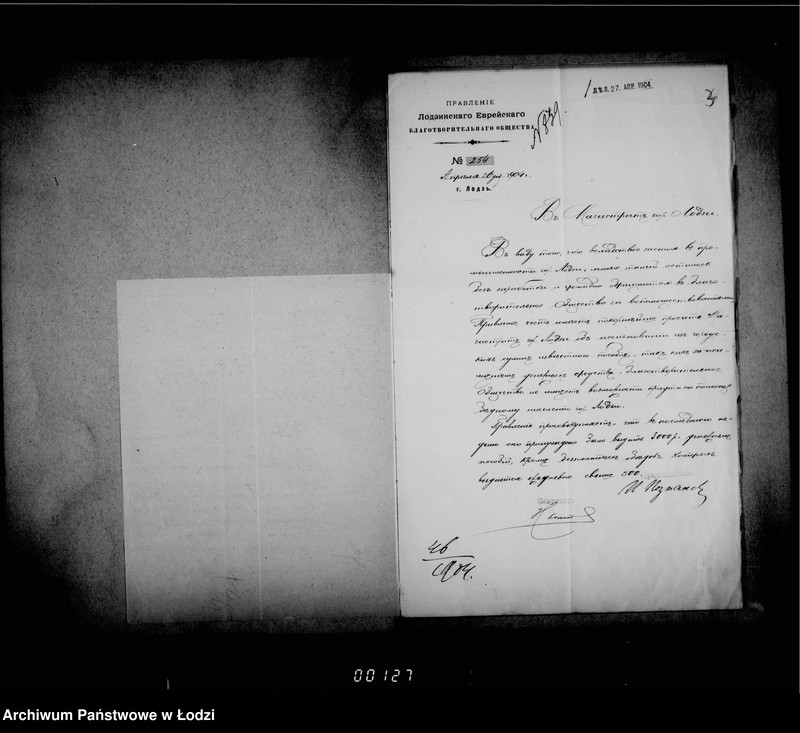 ПРАВЛЕНІЕ
Лодзинскаго Еврейскаго
БЛАГОТВОРИТЕЛЬНАГО ОБЩЕСТВА
№ 254
Апрѣля 26 дня 1904 г.
г. Лодзь.
№ 839.
ДѢЛ. 27. АПР. 1904
Въ Магистратъ гор. Лодзи.
Въ виду того, что вслѣдствіе застоя въ про-
мышленности гор. Лодзи, много ткачей остались
безъ заработка и обращаются въ Благо-
творительное Общество за вспомоществованіемъ
Правленіе честь имѣетъ покорнѣйше просить Ма-
гистратъ гор. Лодзи объ изъ город-
скихъ суммъ извѣстнаго пособія, такъ какъ за неи-
мѣніемъ денежныхъ средствъ, Благотворительное
Общество не имѣетъ возможности придти на помощь
бѣдному населенію гор. Лодзи.
Правленіе присовокупляетъ, что въ послѣднюю не-
дѣлю оно принуждено было выдать 3000 р. денежныхъ
пособій, кромѣ безплатныхъ обѣдовъ, которыхъ
выдается ежедневно свыше 500.
И Познанск
46
1904.
00127
Archiwum Państwowe w Łodzi